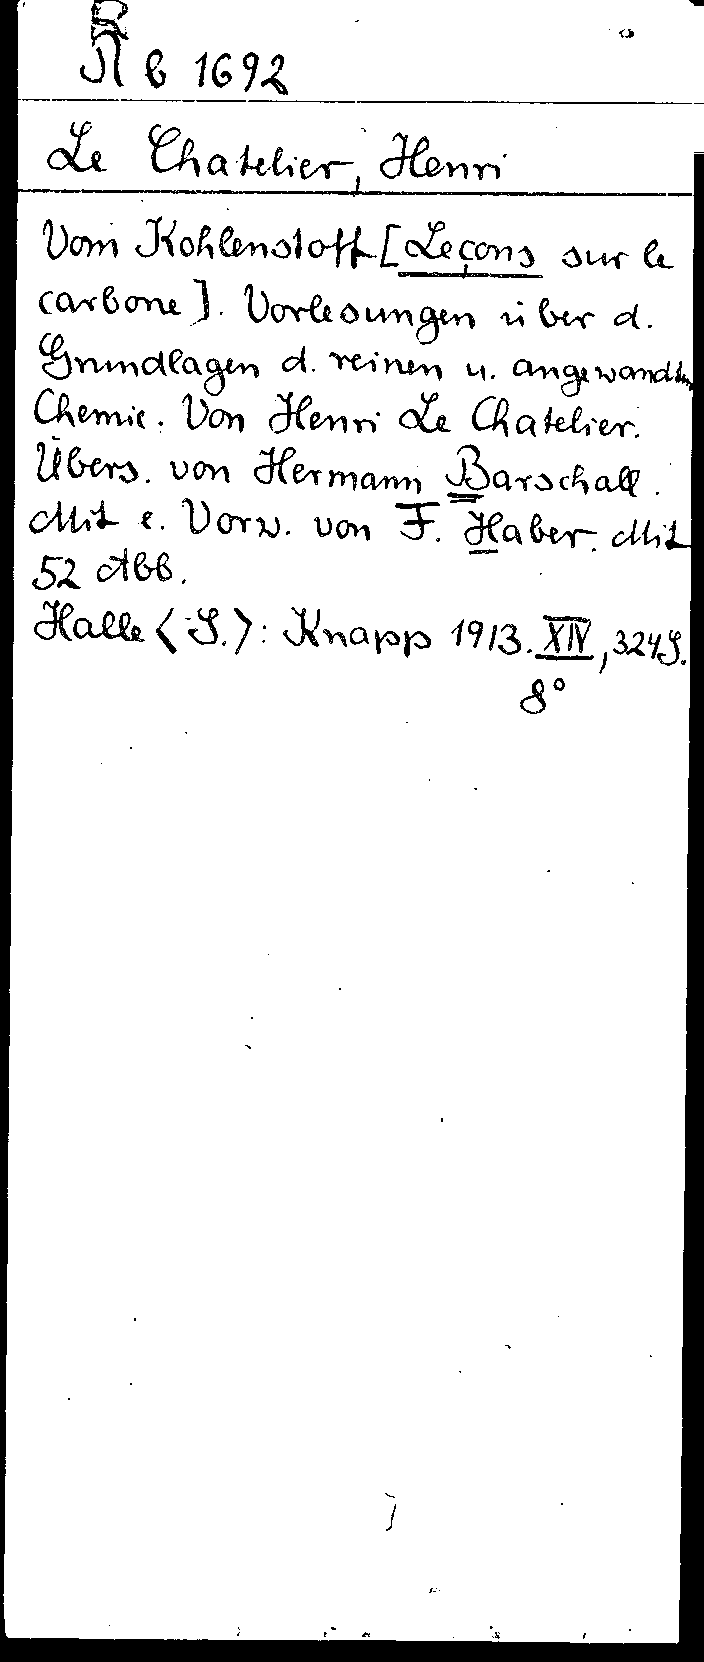 R b 1692
Le Chatelier, Henri
Vom Kohlenstoff [Leçons sur le
carbone]. Vorlesungen über d.
Grundlagen d. reinen u. angewandten
Chemie. Von Henri Le Chatelier.
Übers. von Hermann Barschall.
Mit e. Vorw. von F. Haber. Mit
52 Abb.
Halle <S.>: Knapp 1913. XIV, 324 S.
8°